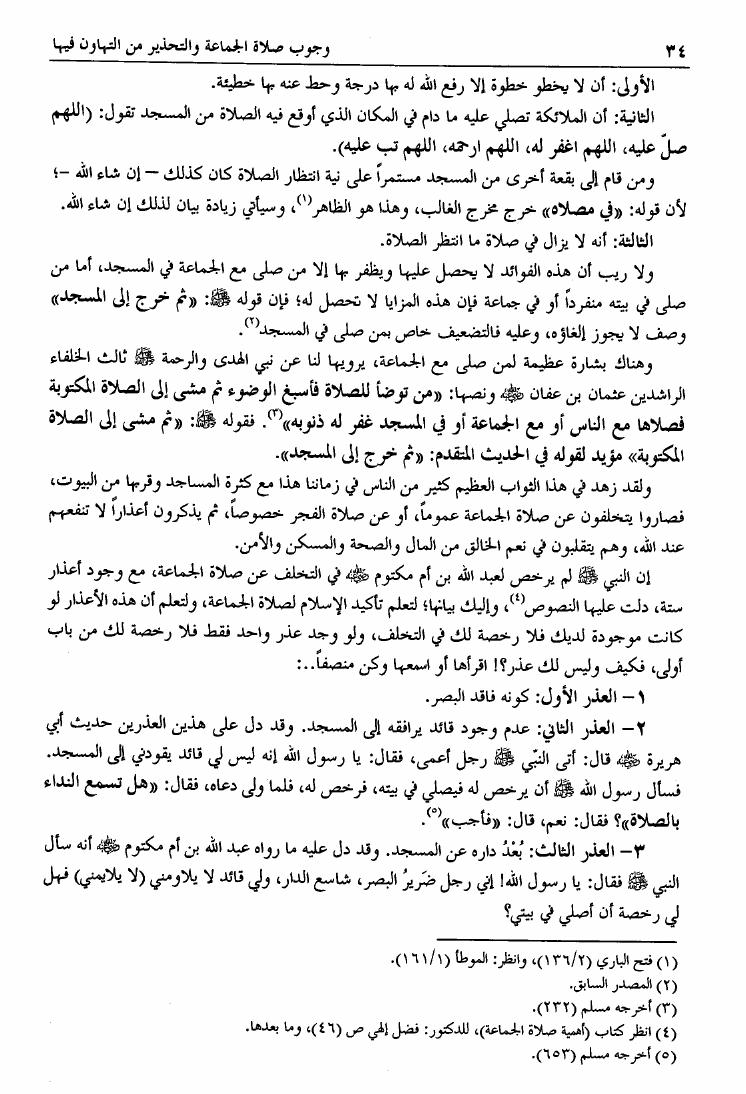 ٣٤ وجوب صلاة الجماعة والتحذير من التهاون فيها
الأولى: أن لا يخطو خطوة إلا رفع الله له بها درجة وحط عنه بها خطيئة.
الثانية: أن الملائكة تصلي عليه ما دام في المكان الذي أوقع فيه الصلاة من المسجد تقول: (اللهم
صلّ عليه، اللهم اغفر له، اللهم ارحمه، اللهم تب عليه).
ومن قام إلى بقعة أخرى من المسجد مستمراً على نية انتظار الصلاة كان كذلك – إن شاء الله –؛
لأن قوله: «في مصلاه» خرج مخرج الغالب، وهذا هو الظاهر(١)، وسيأتي زيادة بيان لذلك إن شاء الله.
الثالثة: أنه لا يزال في صلاة ما انتظر الصلاة.
ولا ريب أن هذه الفوائد لا يحصل عليها ويظفر بها إلا من صلى مع الجماعة في المسجد، أما من
صلى في بيته منفرداً أو في جماعة فإن هذه المزايا لا تحصل له؛ فإن قوله ﷺ: «ثم خرج إلى المسجد»
وصف لا يجوز إلغاؤه، وعليه فالتضعيف خاص بمن صلى في المسجد(٢).
وهناك بشارة عظيمة لمن صلى مع الجماعة، يرويها لنا عن نبي الهدى والرحمة ﷺ ثالث الخلفاء
الراشدين عثمان بن عفان رضي الله عنه ونصها: «من توضأ للصلاة فأسبغ الوضوء ثم مشى إلى الصلاة المكتوبة
فصلاها مع الناس أو مع الجماعة أو في المسجد غفر له ذنوبه»(٣). فقوله ﷺ: «ثم مشى إلى الصلاة
المكتوبة» مؤيد لقوله في الحديث المتقدم: «ثم خرج إلى المسجد».
ولقد زهد في هذا الثواب العظيم كثير من الناس في زماننا هذا مع كثرة المساجد وقربها من البيوت،
فصاروا يتخلفون عن صلاة الجماعة عموماً، أو عن صلاة الفجر خصوصاً، ثم يذكرون أعذاراً لا تنفعهم
عند الله، وهم يتقلبون في نعم الخالق من المال والصحة والمسكن والأمن.
إن النبي ﷺ لم يرخص لعبد الله بن أم مكتوم رضي الله عنه في التخلف عن صلاة الجماعة، مع وجود أعذار
ستة، دلت عليها النصوص(٤)، وإليك بيانها؛ لتعلم تأكيد الإسلام لصلاة الجماعة، ولتعلم أن هذه الأعذار لو
كانت موجودة لديك فلا رخصة لك في التخلف، ولو وجد عذر واحد فقط فلا رخصة لك من باب
أولى، فكيف وليس لك عذر؟! اقرأها أو اسمعها وكن منصفاً..:
١– العذر الأول: كونه فاقد البصر.
٢– العذر الثاني: عدم وجود قائد يرافقه إلى المسجد. وقد دل على هذين العذرين حديث أبي
هريرة رضي الله عنه قال: أتى النّبي ﷺ رجل أعمى، فقال: يا رسول الله إنه ليس لي قائد يقودني إلى المسجد.
فسأل رسول الله ﷺ أن يرخص له فيصلي في بيته، فرخص له، فلما ولى دعاه، فقال: «هل تسمع النداء
بالصلاة»؟ فقال: نعم، قال: «فأجب»(٥).
٣– العذر الثالث: بُعْدُ داره عن المسجد. وقد دل عليه ما رواه عبد الله بن أم مكتوم رضي الله عنه أنه سأل
النبي ﷺ فقال: يا رسول الله! إني رجل ضَرِيرُ البصر، شاسع الدار، ولي قائد لا يلاومني (لا يلايمني) فهل
لي رخصة أن أصلي في بيتي؟
(١) فتح الباري (١٣٦/٢)، وانظر: الموطأ (١٦١/١).
(٢) المصدر السابق.
(٣) أخرجه مسلم (٢٣٢).
(٤) انظر كتاب (أهمية صلاة الجماعة)، للدكتور: فضل إلهي ص (٤٦)، وما بعدها.
(٥) أخرجه مسلم (٦٥٣).